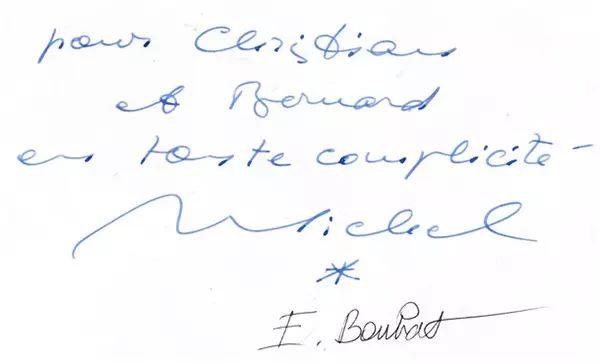 pour Christian
et Bernard
en toute complicité -
Michel
*
E. Boubat